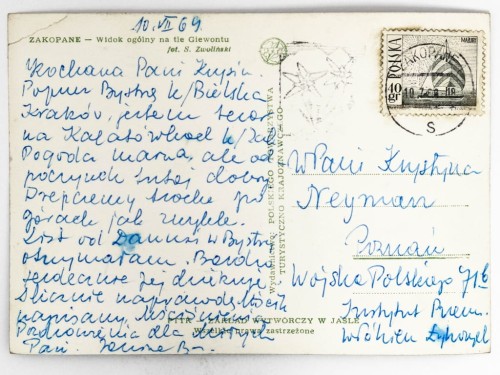 10.VII 69
ZAKOPANE — Widok ogólny na tle Giewontu
fot. S. Zwoliński
Kochana Pani Krysiu.
Poprzez Bystrą k/Bielska
Kraków, jestem teraz
na Kalatówkach k/Zak
Pogoda marna, ale od
poczynek tutaj dobry
Drepczemy trochę po
górach jak zwykle.
List od Danusi w Bystrej
otrzymałam. Bardzo
serdecznie jej dziękuję.
Ślicznie naprawdę
napisany.
Pozdrowienia dla
Pani. Janina
Wydawnictwo POLSKIEGO TOWARZYSTWA
TURYSTYCZNO KRAJOZNAWCZEGO
ZAKŁAD WYTWÓRCZY W JAŚLE
Wszelkie prawa zastrzeżone
POLSKA
40 gr
ZAKOPANE
S
WPani Krystyna
Neyman
Poznań
Wojska Polskiego 71 b
Instytut Przem.
Włókien Łykowych